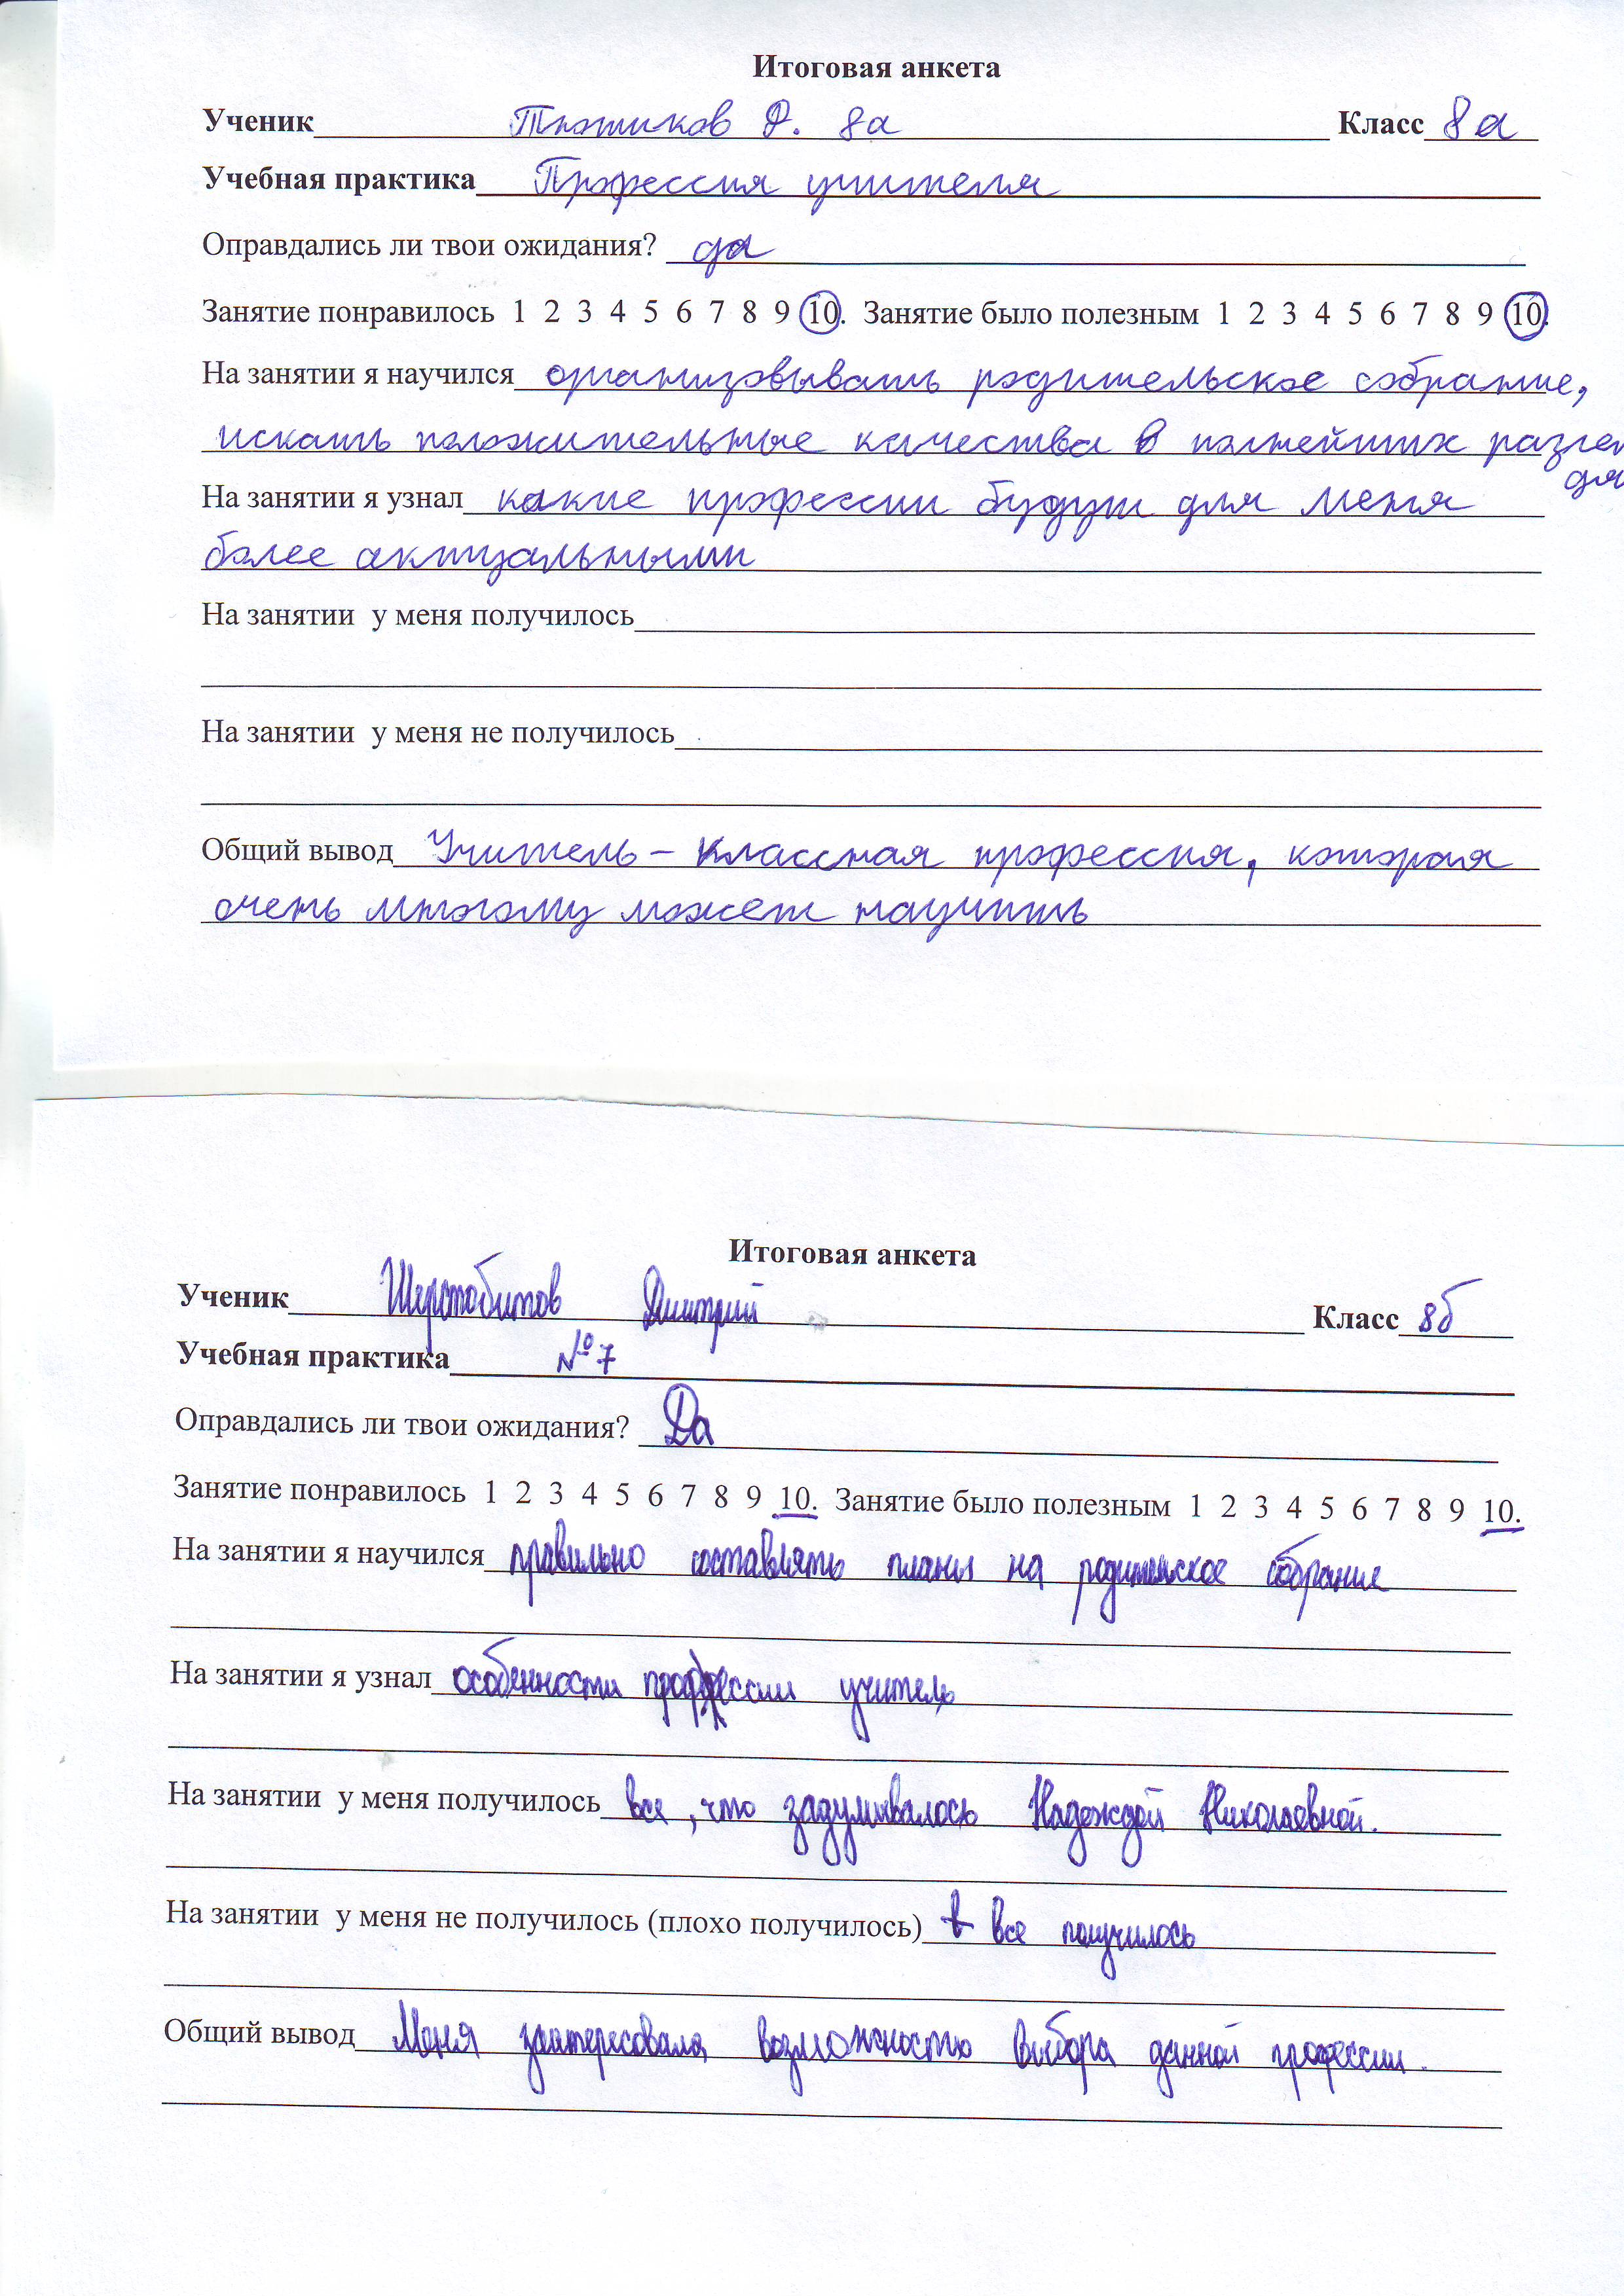 Итоговая анкета
Ученик Р. 8а Класс 8а
Учебная практика Профессия учителя
Оправдались ли твои ожидания? да
Занятие понравилось 1 2 3 4 5 6 7 8 9 10. Занятие было полезным 1 2 3 4 5 6 7 8 9 10.
На занятии я научился организовывать родительское собрание,
искать положительные качества в
На занятии я узнал какие профессии будут для меня
более актуальными
На занятии у меня получилось
На занятии у меня не получилось
Общий вывод Учитель – классная профессия, которая
очень многому может научить
Итоговая анкета
Ученик Шерстобитов Дмитрий Класс 8б
Учебная практика №7
Оправдались ли твои ожидания? Да
Занятие понравилось 1 2 3 4 5 6 7 8 9 10. Занятие было полезным 1 2 3 4 5 6 7 8 9 10.
На занятии я научился правильно составлять планы на родительское собрание
На занятии я узнал особенности профессии учитель
На занятии у меня получилось все, что задумывалось Надеждой Николаевной.
На занятии у меня не получилось (плохо получилось) все получилось
Общий вывод Меня заинтересовала возможность выбора данной профессии.